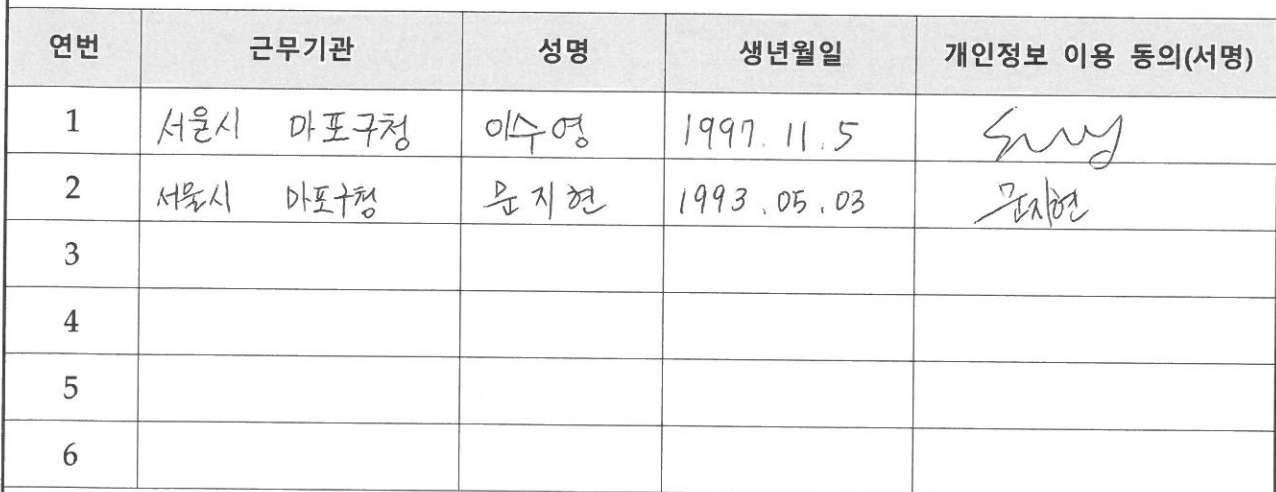 연번 근무기관 성명 생년월일 개인정보 이용 동의(서명)
1 서울시 마포구청 이수영 1997. 11. 5
2 서울시 마포구청 문지현 1993. 05. 03 문지현
3
4
5
6